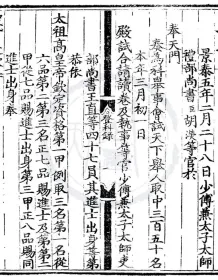 景泰五年二月二十八日少傅兼太子太師
禮部尚書臣胡濙等官於
奉天門
奏爲科舉事會試天下舉人取中三百五十名
本年三月初一日
殿試合請讀卷及執事等官少傅兼太子太師吏
部尚書王直等四十七員其進士出身等第
恭依
太祖高皇帝欽定資格第一甲例取三名第一名從
六品第二第三名正七品賜進士及第第二
甲從七品賜進士出身第三甲正八品賜同
進士出身奉